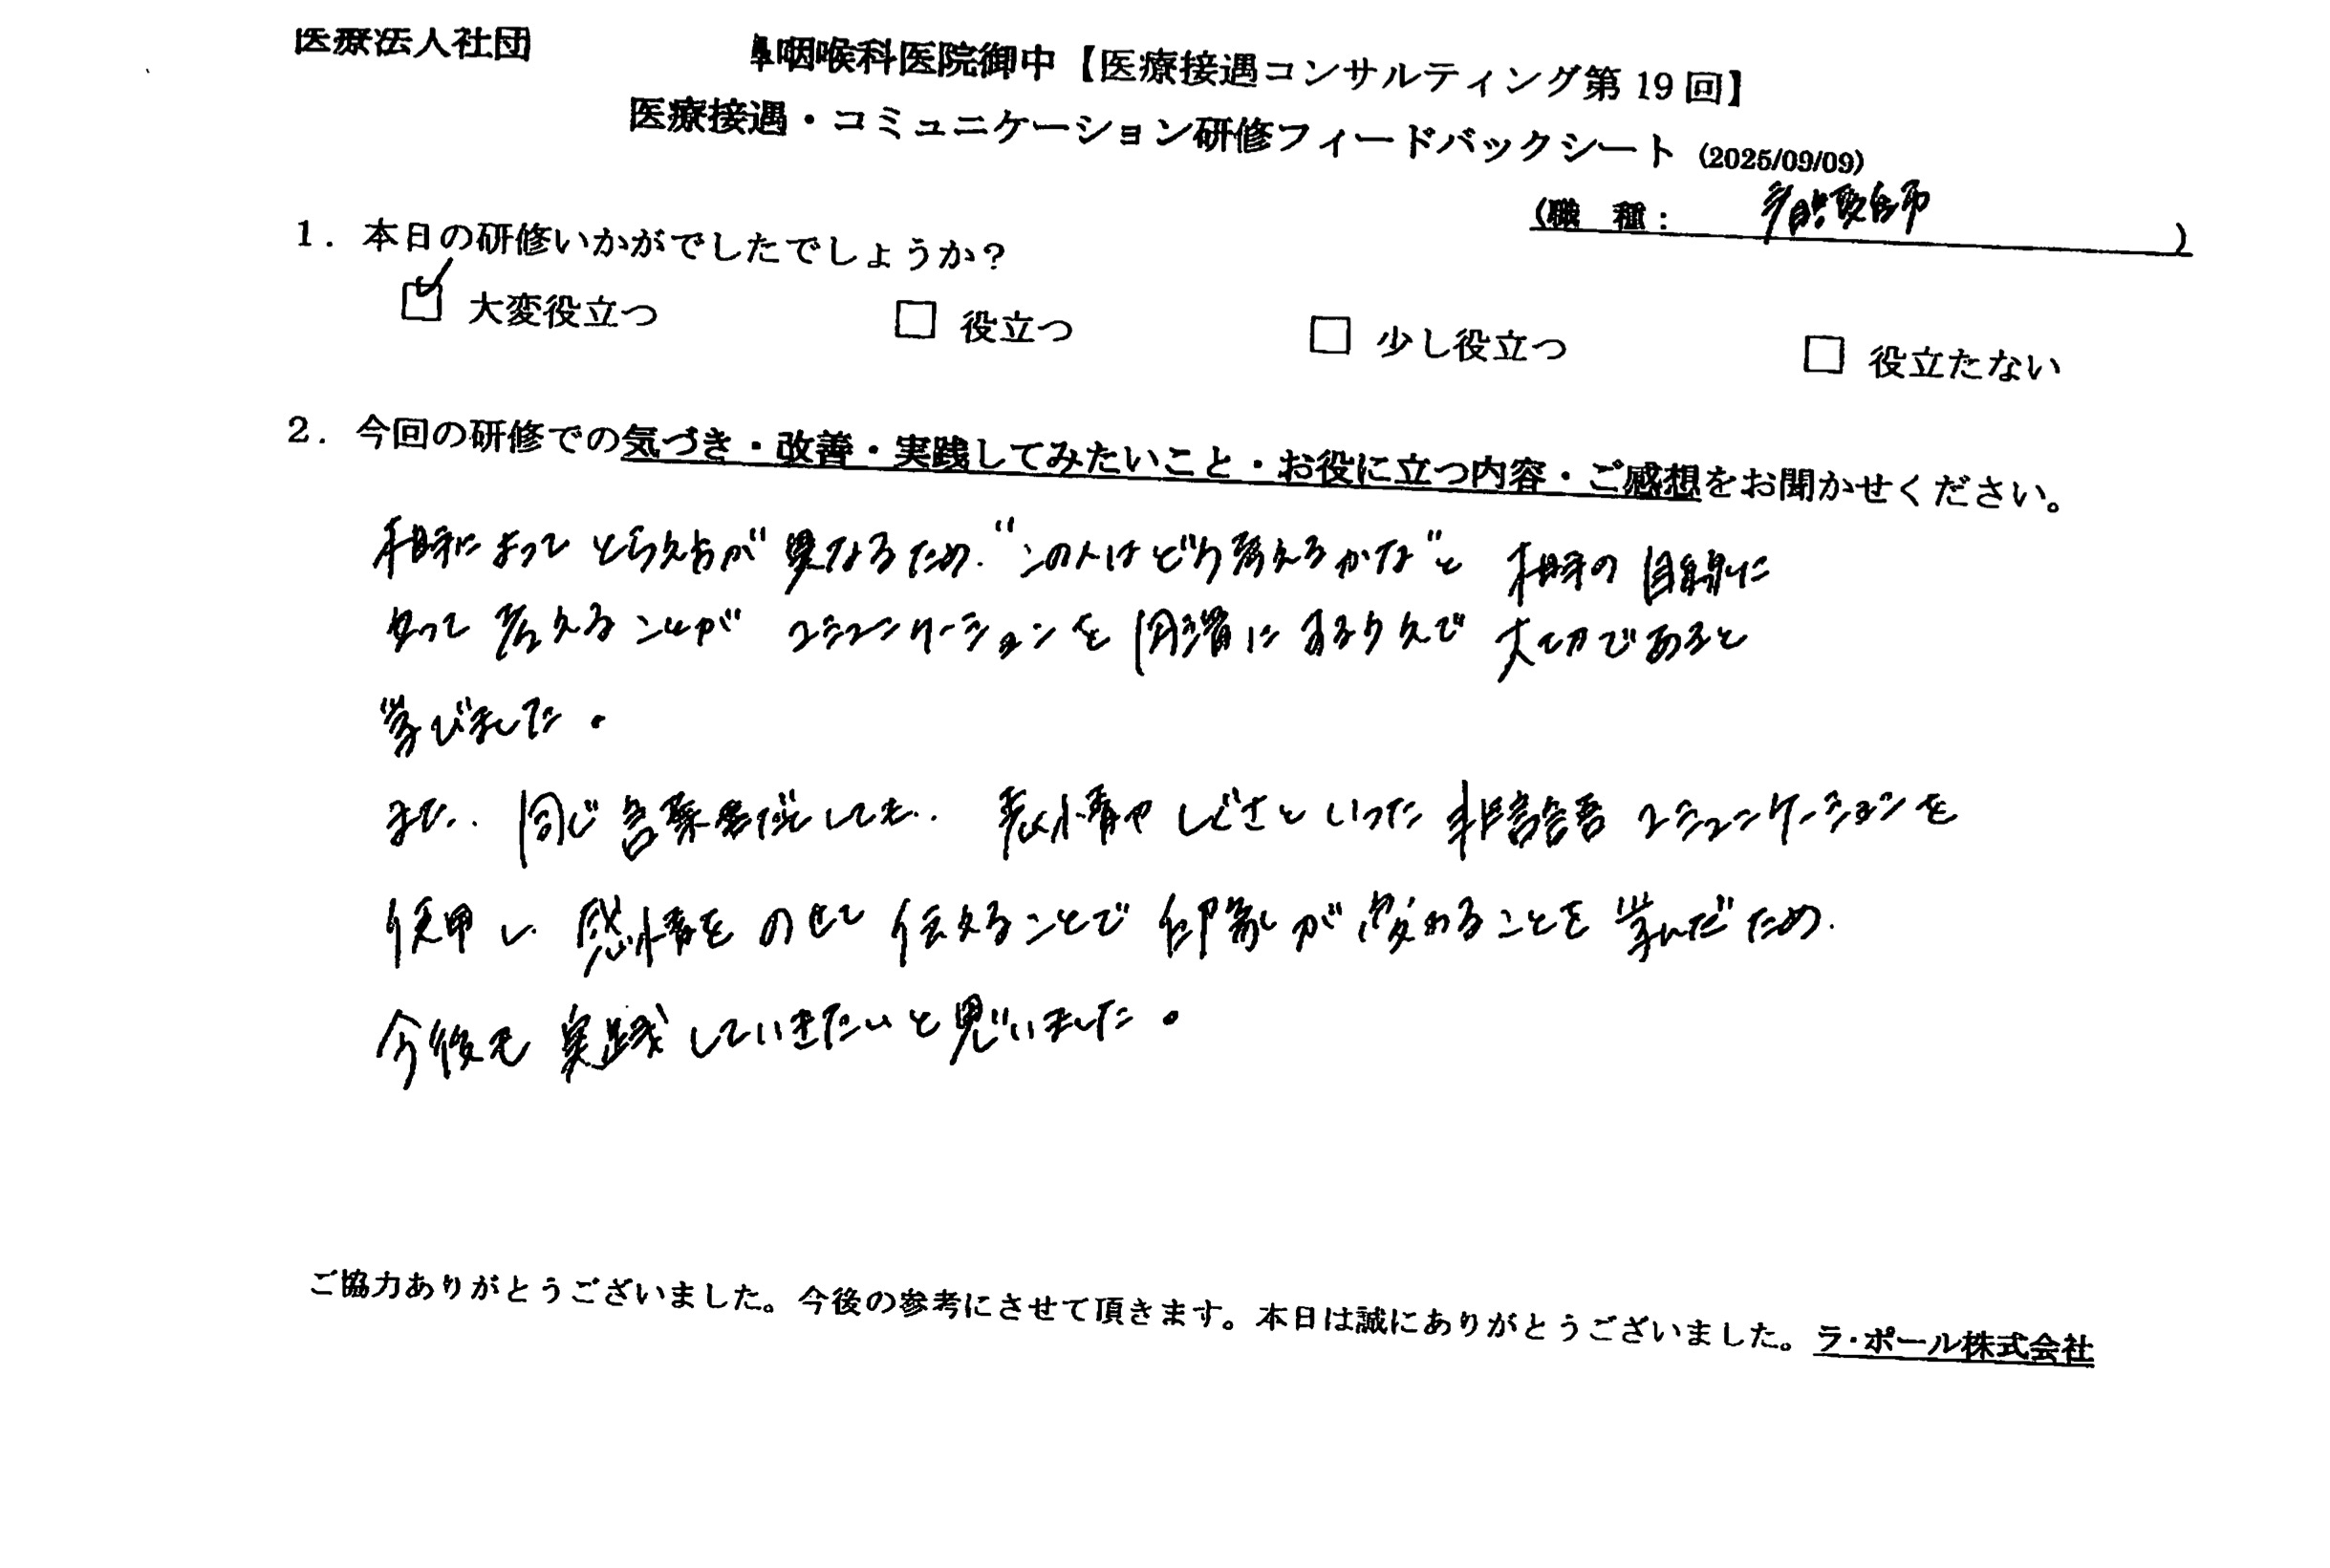 医療法人社団 咽喉科医院御中【医療接遇コンサルティング第 19 回】
医療接遇・コミュニケーション研修フィードバックシート (2025/09/09)
(職 種: )
1. 本日の研修いかがでしたでしょうか?
大変役立つ 役立つ 少し役立つ 役立たない
2. 今回の研修での気づき・改善・実践してみたいこと・お役に立つ内容・ご感想をお聞かせください。
相手によって とらえ方が 異なるため、“この人はどう考えるかな”と 相手の 目線に
立って 考えることが コミュニケーションを 円滑に するうえで 大切であると
学びました。
また、同じ 言葉 しても、表情や しぐさといった 非言語 コミュニケーションを
使用し、感情を のせて 伝えることで 印象が 変わることを 学んだため、
今後も 実践していきたいと思いました。
ご協力ありがとうございました。今後の参考にさせて頂きます。本日は誠にありがとうございました。ラ・ポール株式会社